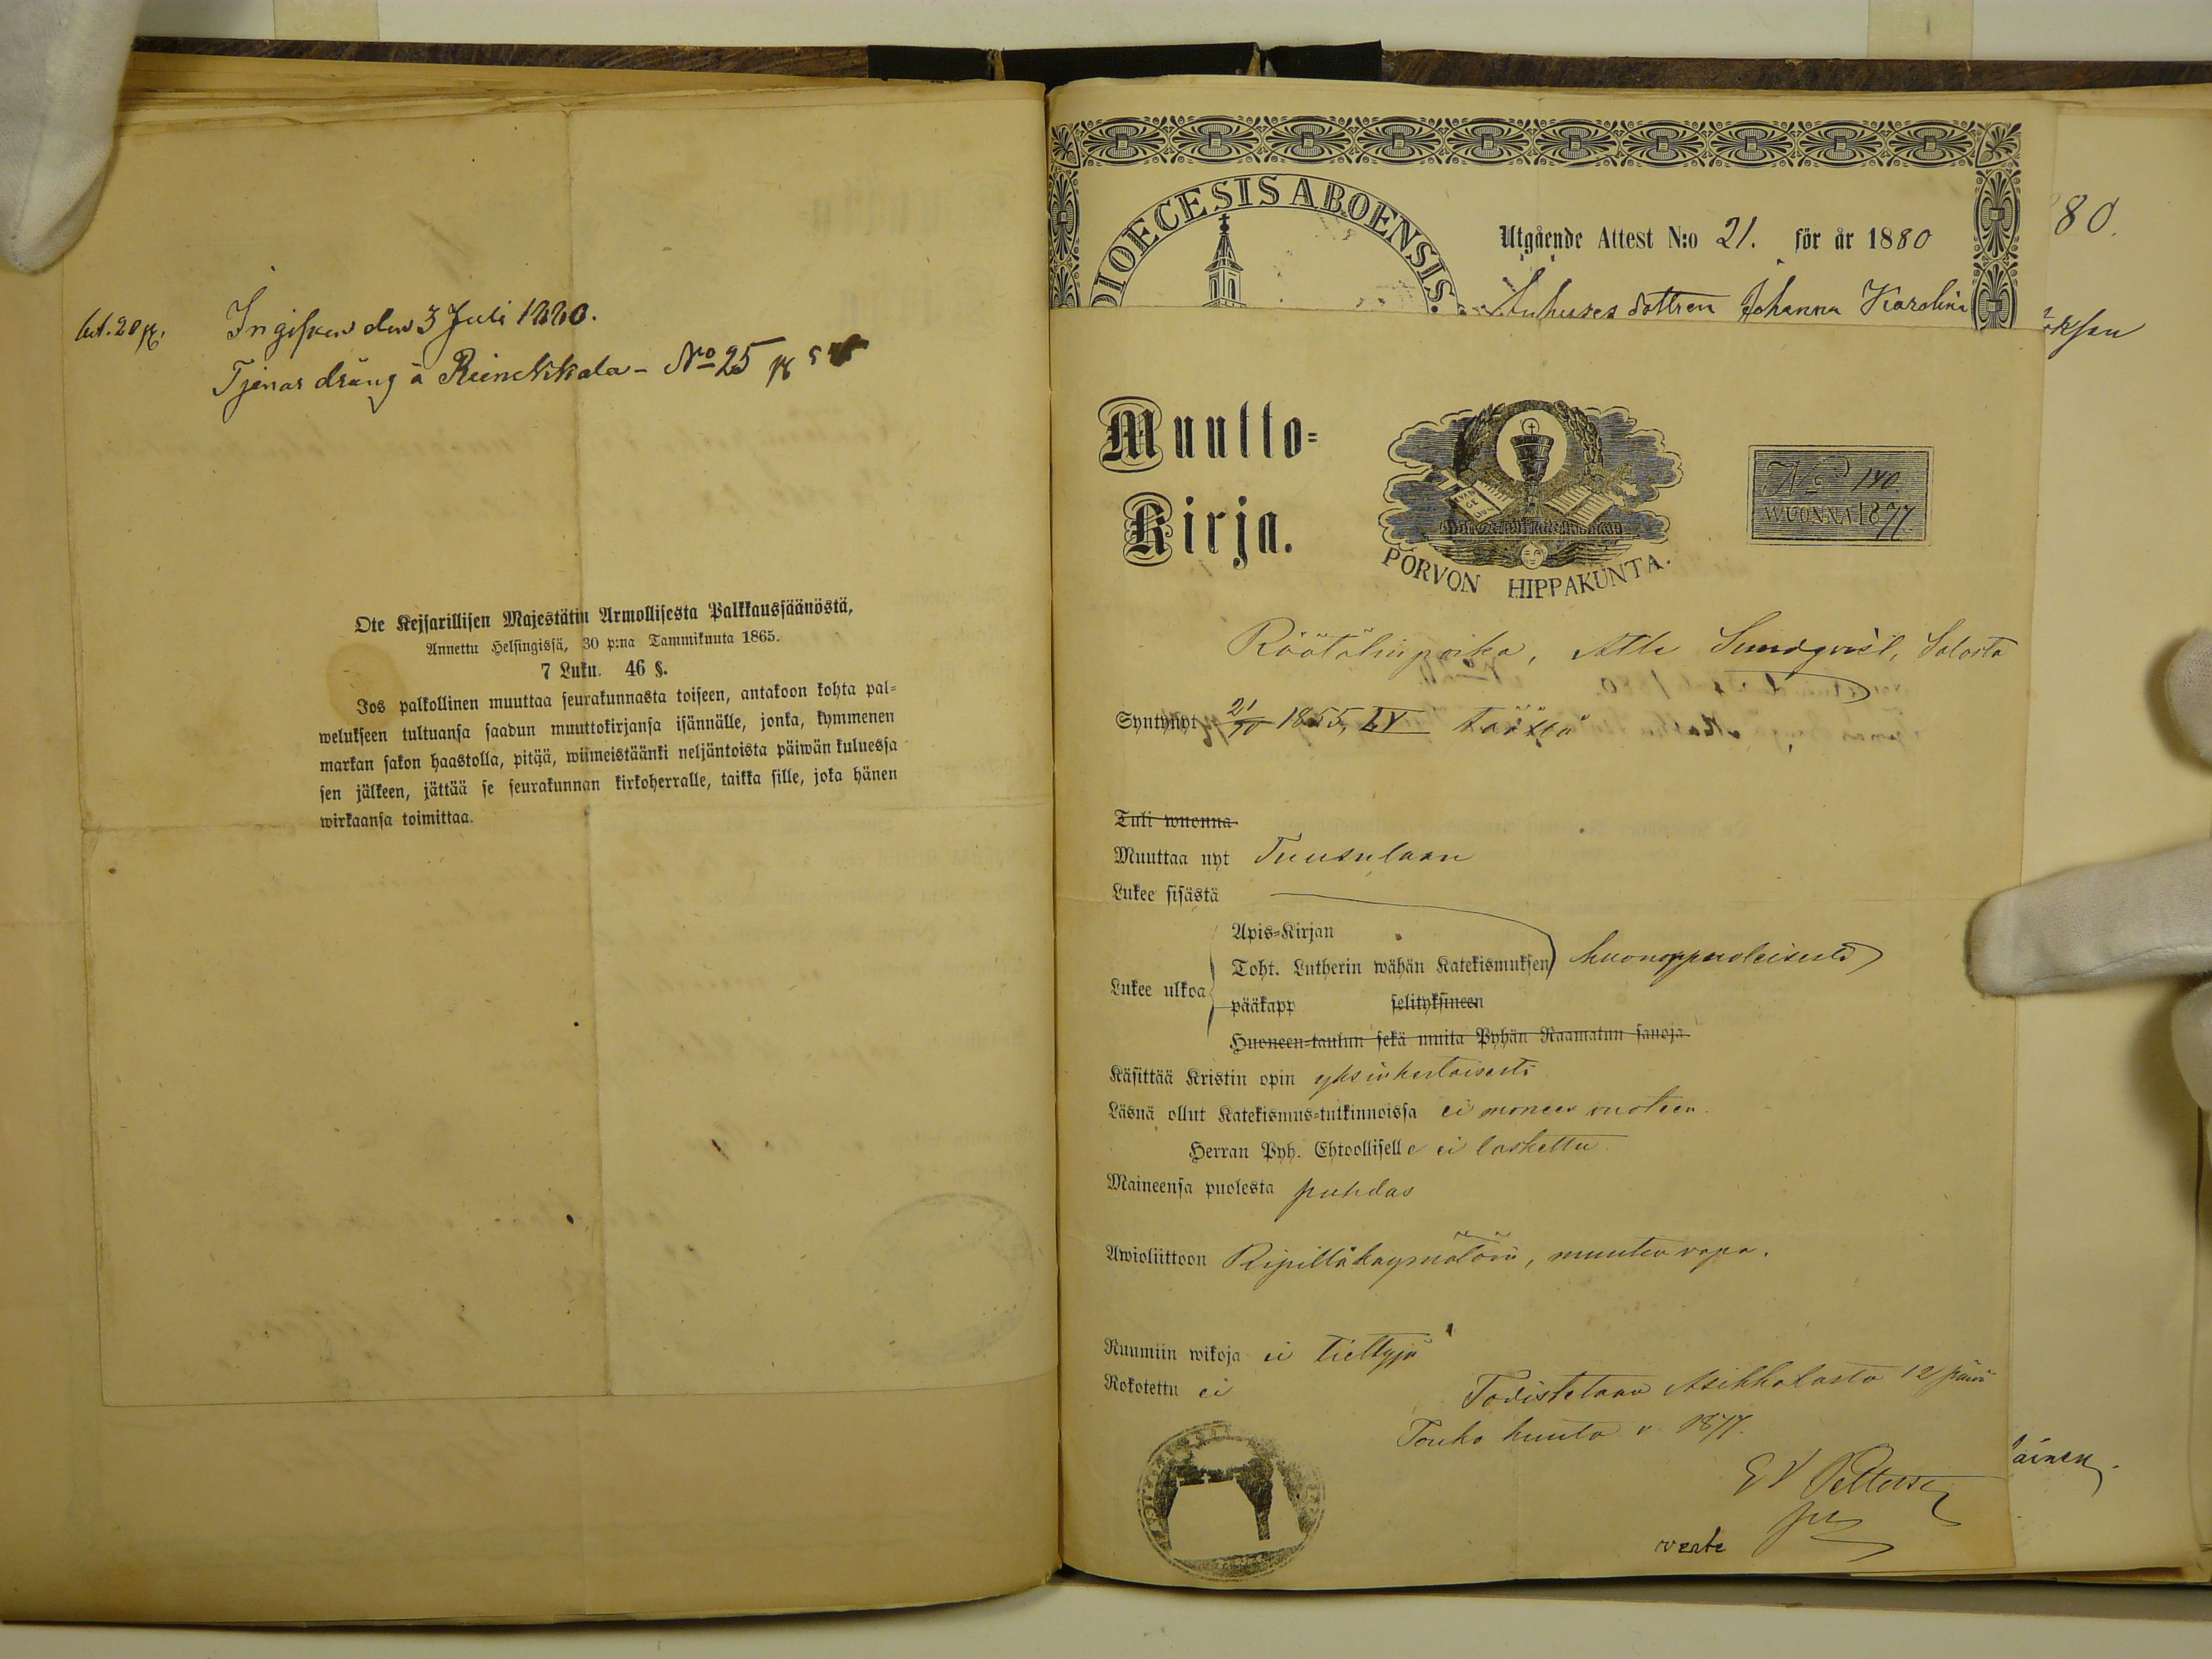 Ingifven den 3 Juli 1880.
Tjenar dräng å Reinckkala - No 25
Ote Kejsarillisen Majestätin Armollisesta Palkkaussäänöstä,
Annettu Helsingissä, 30 p:na Tammikuuta 1865.
7 Luku. 46 §.
Jos palkollinen muuttaa seurakunnasta toiseen, antakoon kohta pal=
welukseen tultuansa saadun muuttokirjansa isännälle, jonka, kymmenen
markan sakon haastolla, pitää, wiimeistäänki neljäntoista päiwän kuluessa
sen jälkeen, jättää se seurakunnan kirkoherralle, taikka sille, joka hänen
wirkaansa toimittaa.
DIOECESIS ABOENSIS.
Utgående Attest N:o 21. för år 1880
dottren Johanna Karolina
80.
Muutto=
Kirja.
PORVON HIPPAKUNTA.
No 140
WUONNA 1877
Räätälinpoika, Atle Sundqvist, Salosta
Syntynyt 1855, täällä
Tuli wuonna
Muuttaa nyt Tuusulaan
Lukee sisästä
Apis=Kirjan
Toht. Lutherin wähän Katekismuksen huonoppuoleisesti
Lukee ulkoa
pääkapp selityksineen
Huoneen=taulun sekä muita Pyhän Raamatun sanoja
Käsittää Kristin opin yksinkertaisesti
Läsnä ollut Katekismus=tutkinnoissa ei moneen vuoteen.
Herran Pyh. Ehtoolliselle ei laskettu
Maineensa puolesta puhdas
Awioliittoon Ripillä käymätöin, muuten vapa.
Ruumiin wikoja ei tiettyjä
Rokotettu ei
Todistetaan Asikkalasta 12 päivä
Touko kuuta v. 1877.
verte